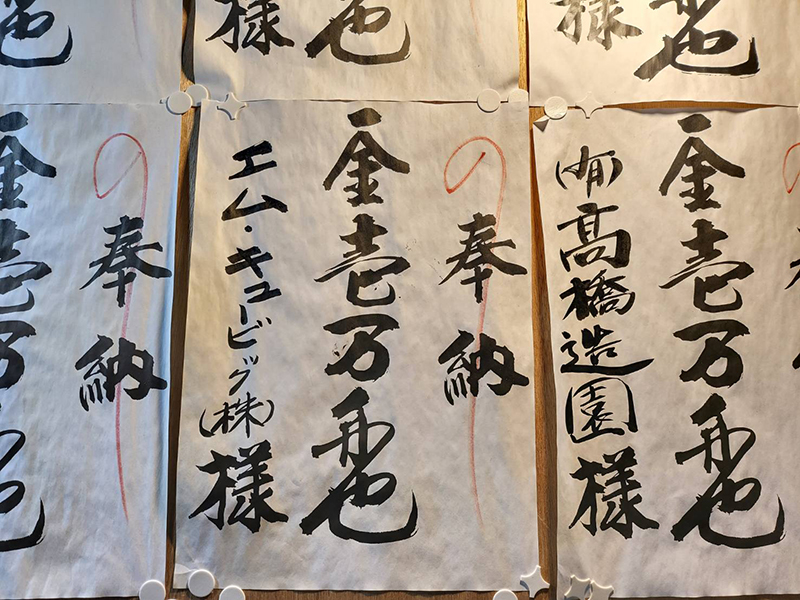 円也
様
也
様
也
金壱万円也
(有)髙橋造園様
奉納
金壱万円也
エム・キュービック(株)様
奉納
金壱万円也